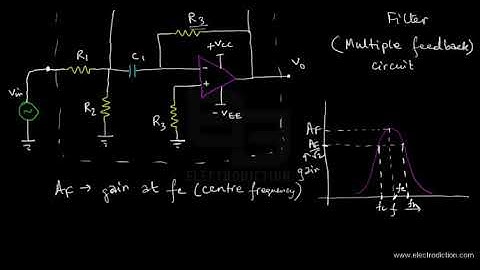 Filter
(Multiple feedback)
circuit
R3
+VCC
R1
C1
-
+
Vo
Vin
~
R2
R3
-VEE
ELECTRODICTION
AF
AF
√2
gain
AF → gain at fc (centre frequency)
fL
fh
www.electrodiction.com